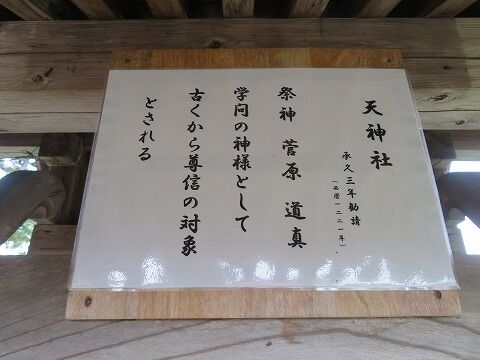 天神社
承久三年勧請
(西暦一二二一年)
祭神 菅原 道真
学問の神様として
古くから尊信の対象
とされる